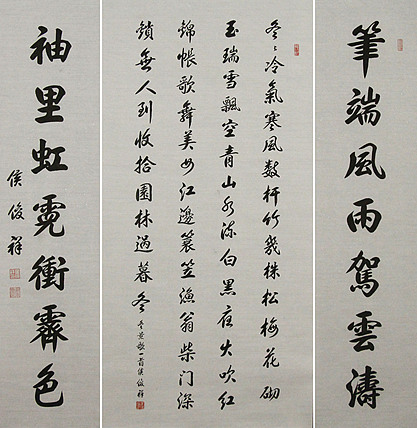 筆端風雨駕雲濤
冬〻冷氣寒風數杆竹幾株松梅花砌
玉瑞雪飄空青山水凍白黑夜火吹红
錦帳歌舞美女江邊蓑笠漁翁柴门深
鎖無人到收拾園林過暮冬
冬景歌一首侯俊祥
袖里虹霓衝霽色
侯俊祥